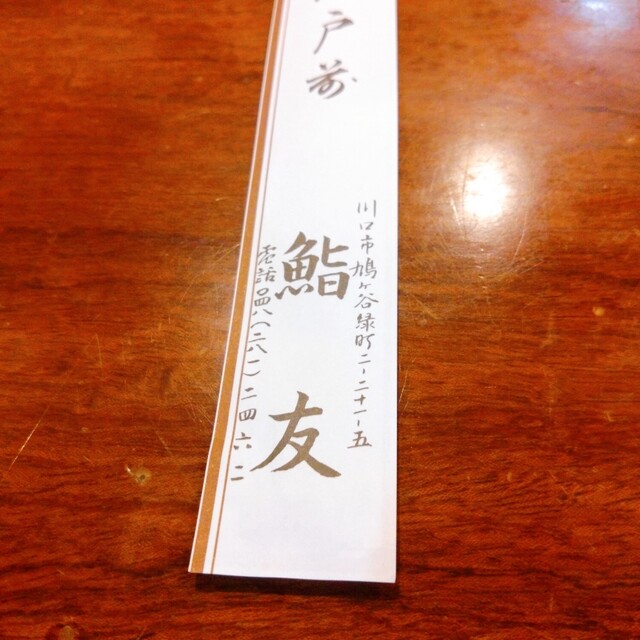 戸前
川口市鳩ヶ谷緑町二-二十一-五
鮨友
電話 四八(二八一)二四六二